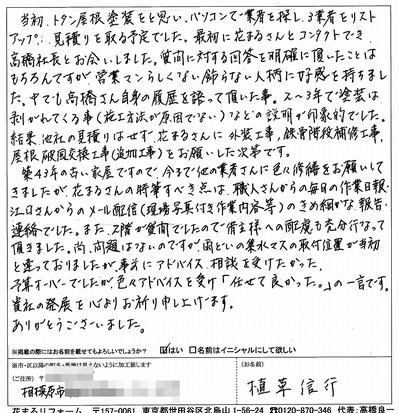 当初、トタン屋根塗装をと思い、パソコンで業者を探し、3業者をリスト
アップし、見積りを取る予定でした。最初に花まるさんとコンタクトでき
高橋社長とお会いしました。質問に対する回答を明確に頂いたことは
もちろんですが、営業マンらしくない飾らない人柄に好感を持ちまし
た。中でも高橋さん自身の履歴を語って頂いた事。2〜3年で塗装は
剥がれてくる事(施工方法が原因でない)などの説明が印象的でした。
結果、他社の見積りはせず、花まるさんに外装工事、鉄骨階段補修工事、
屋根、破風交換工事(追加工事)をお願いした次第です。
築43年の古い家屋ですので、今まで他の業者さんに色々修繕をお願いして
きましたが、花まるさんの特筆すべき点は、職人さんからの毎日の作業日報・
江口さんからのメール配信(現場写真付き作業内容等)のきめ細かな報告・
連絡でした。また、2階が賃貸でしたので借主様への配慮も充分行なって
頂きました。尚、問題はないのですが、雨といの集水マスの取付位置が当初
と違っておりましたが、事前にアドバイス、相談を受けたかった。
予算オーバーでしたが色々アドバイスを受け「任せて良かった。」の一言です。
貴社の発展を心よりお祈り申し上げます。
ありがとうございました。
※掲載の際にはお名前を載せてもよろしいでしょうか? ☑はい □名前はイニシャルにして欲しい
(ご住所) 〒
相模原市
(お名前)
植草信行
花まるリフォーム 〒157-0061 東京都世田谷区北烏山1-56-24 0120-870-346 代表:高橋良一